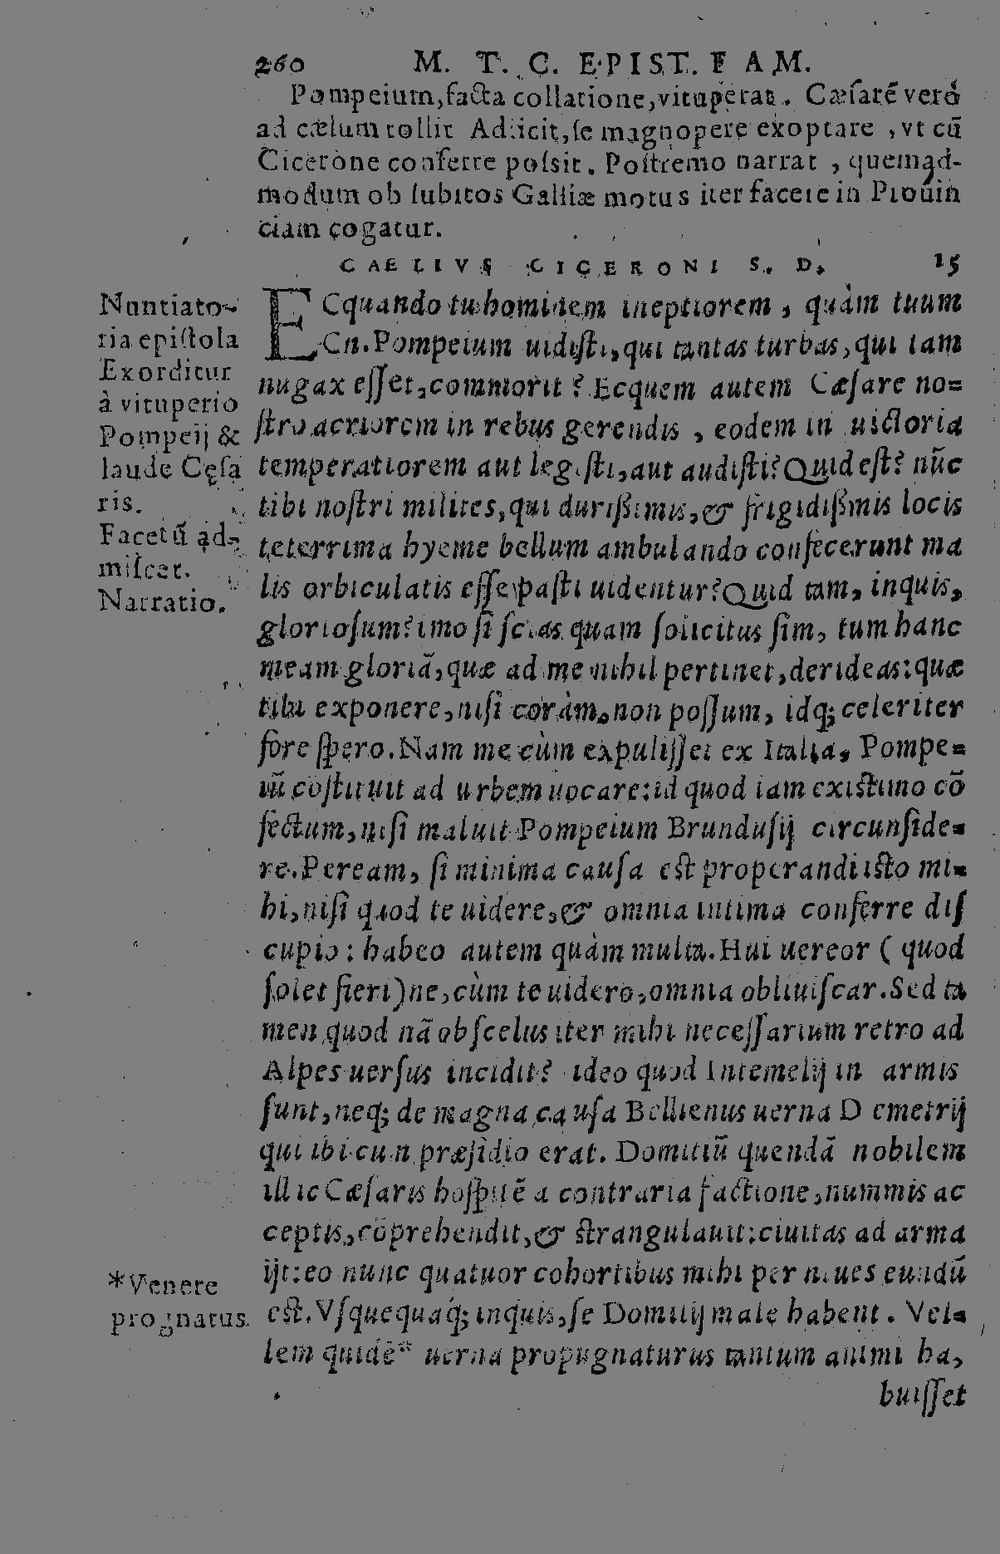 260 M. T. C. EPIST. FAM.
Pompeium, facta collatione, vituperat. Cæsarẽ verò
ad cælum tollit Adiicit, se magnopere exoptare , vt cũ
Cicerone conferre possit. Postremo narrat , quemad-
modum ob subitos Galliæ motus iter facere in Prouin
ciam cogatur.
CAELIVS CICERONI S. D. 15
ECquando tu hominem ineptiorem , quàm tuum
Cn. Pompeium uidisti, qui tantas turbas, qui tam
nugax esset, commorit ? Ecquem autem Cæsare no=
stro acriorem in rebus gerendis , eodem in uictoria
temperatiorem aut legisti, aut audisti? Quid est? nũc
tibi nostri milites, qui durißimis, & frigidißmis locis
teterrima hyeme bellum ambulando confecerunt ma
lis orbiculatis esse pasti uidentur? Quid tam, inquis,
gloriosum? imo si scias quam solicitus sim, tum hanc
meam gloriã, quæ ad me nihil pertinet, derideas: quæ
tibi exponere, nisi coràm, non possum, idq; celeriter
fore spero. Nam me cùm expulisset ex Italia, Pompe=
iũ cõstituit ad urbem uocare: id quod iam existimo cõ
fectum, nisi maluit Pompeium Brundusij circunside=
re. Peream, si minima causa est properandi isto mi=
hi, nisi quod te uidere, & omnia intima conferre dis
cupio: habeo autem quàm multa. Hui uereor ( quod
solet fieri) ne, cùm te uidero, omnia obliuiscar. Sed ta
men quod nã ob scelus iter mihi necessarium retro ad
Alpes uersus incidit? ideo quod Intemelij in armis
sunt, neq; de magna causa Bellienus uerna Demetrij
qui ibi cum præsidio erat. Domitiũ quendã nobilem
illic Cæsaris hospitẽ a contraria factione, nummis ac
ceptis, cõprehendit, & strangulauit: ciuitas ad arma
ijt: eo nunc quatuor cohortibus mihi per niues eundũ
est. Vsquequaq́; inquis, se Domitij male habent. Vel=
lem quidẽ* uerna propugnaturus tantum animi ha,
buisset
Nuntiato-
ria epistola
Exorditur
à vituperio
Pompeij &
laude Cęsa
ris.
Facetũ ad-
miscet.
Narratio.
*Venere
prognatus.